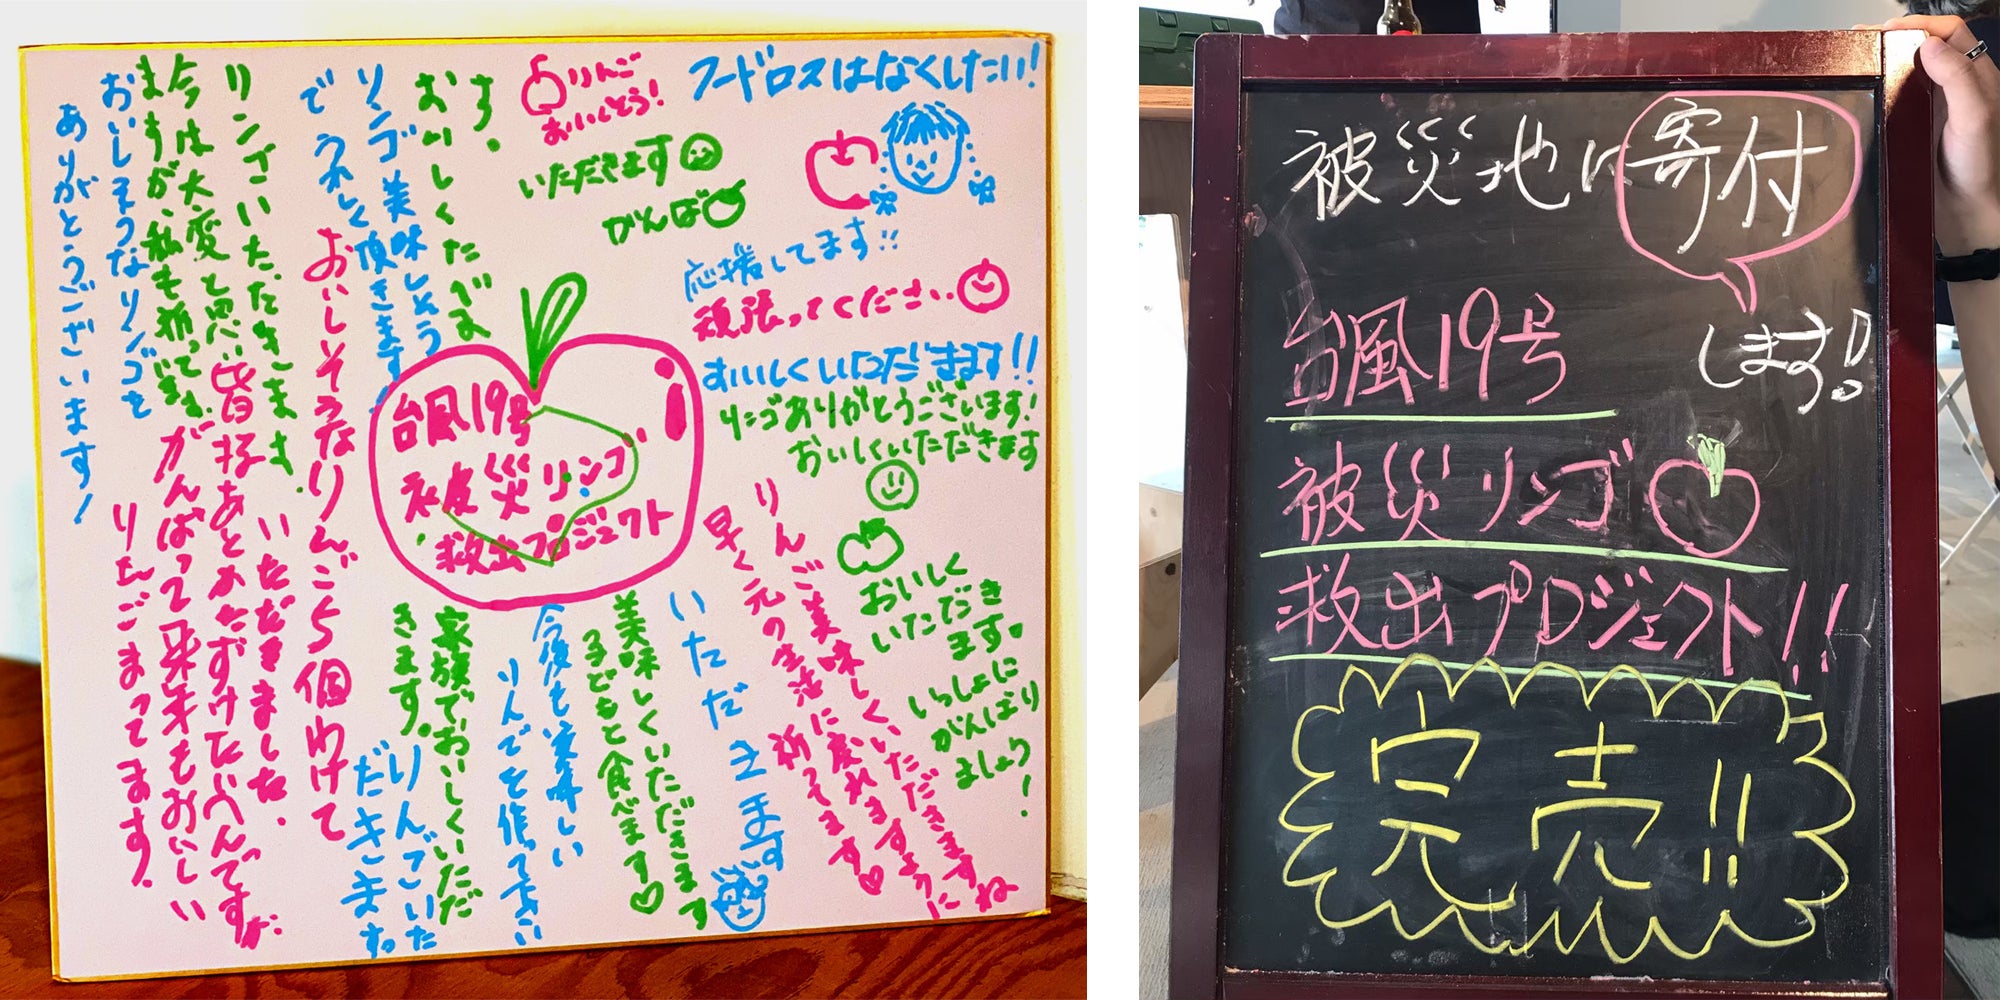 フードロスはなくしたい!
りんご
おいしそう!
いただきます
がんば
応援してます!!
頑張ってください
おいしくいただきます!!
リンゴありがとうございます!
おいしくいただきます
おいしく
いただき
ます。
いっしょに
がんばり
ましょう!
りんご美味しくいただきますね
早く元の生活に戻れますように
祈ってます♡
いただきます
美味しくいただきます
子どもと食べます♡
今後も美味しい
りんごを作って下さい
家族でおいしくいただ
きます。
りんごいた
だきます。
台風19号
被災リンゴ
救出プロジェクト
す。
おいしくたべま
リンゴ美味しそう
でうれしく頂きます
おいしそうなりんご5個わけて
いただきました。
リンゴいただきます。
今は大変と思い
ますが、私も祈ってます。
おいしそうなリンゴを
ありがとうございます!
皆様あとかたずけたいへんですが、
がんばって来年もおいしい
りんごまってます。
被災地に寄付
します!
台風19号
被災リンゴ
救出プロジェクト!!
完売!!